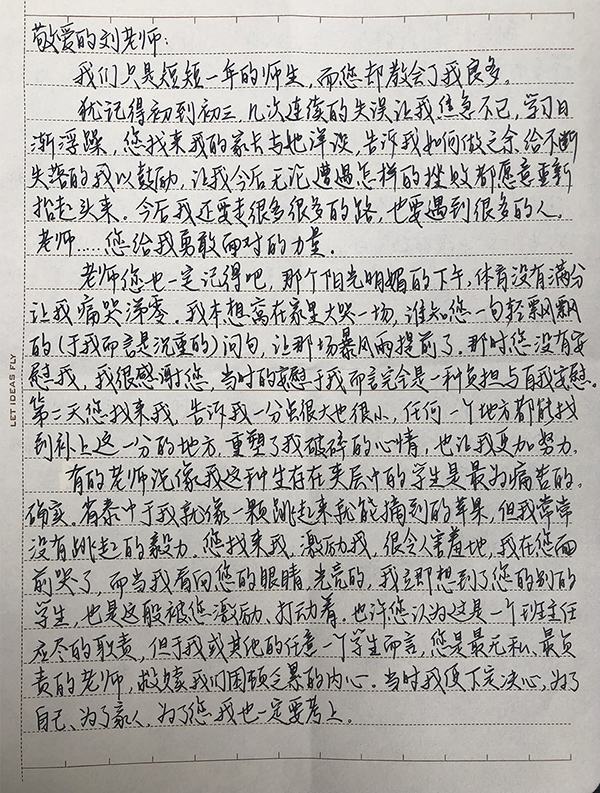 敬爱的刘老师:
我们只是短短一年的师生,而您却教会了我良多。
犹记得初到初三,几次连续的失误让我焦急不已,学习日
渐浮躁,您找来我的家长与她详谈,告诉我如何做之余给不断
失落的我以鼓励,让我今后无论遭遇怎样的挫败都愿意重新
抬起头来。今后我还要走很多很多的路,也要遇到很多的人。
老师……您给我勇敢面对的力量。
老师您也一定记得吧,那个阳光明媚的下午,体育没有满分
让我痛哭涕零。我本想窝在家里大哭一场,谁知您一句轻飘飘
的(于我而言是沉重的)问句,让那场暴风雨提前了。那时您没有安
慰我,我很感谢您,当时的安慰于我而言完全是一种负担与自我安慰。
第二天您找来我,告诉我一分点很大也很小,任何一个地方都能找
到补上这一分的地方,重塑了我破碎的心情,也让我更加努力。
有的老师说像我这种生存在夹层中的学生是最为痛苦的。
确实,省泰中于我就像一颗跳起来就能摘到的苹果,但我常常
没有跳起的毅力。您找来我,激励我,很令人害羞地,我在您面
前哭了,而当我看向您的眼睛,光亮的,我立即想到了您的别的
学生,也是这般被您激励、打动着。也许您认为这是一个班主任
应尽的职责,但于我或其他的任意一个学生而言,您是最无私、最负
责的老师,救赎我们困顿之景的内心。当时我便下定决心,为了
自己、为了家人、为了您,我也一定要考上。
LET IDEAS FLY